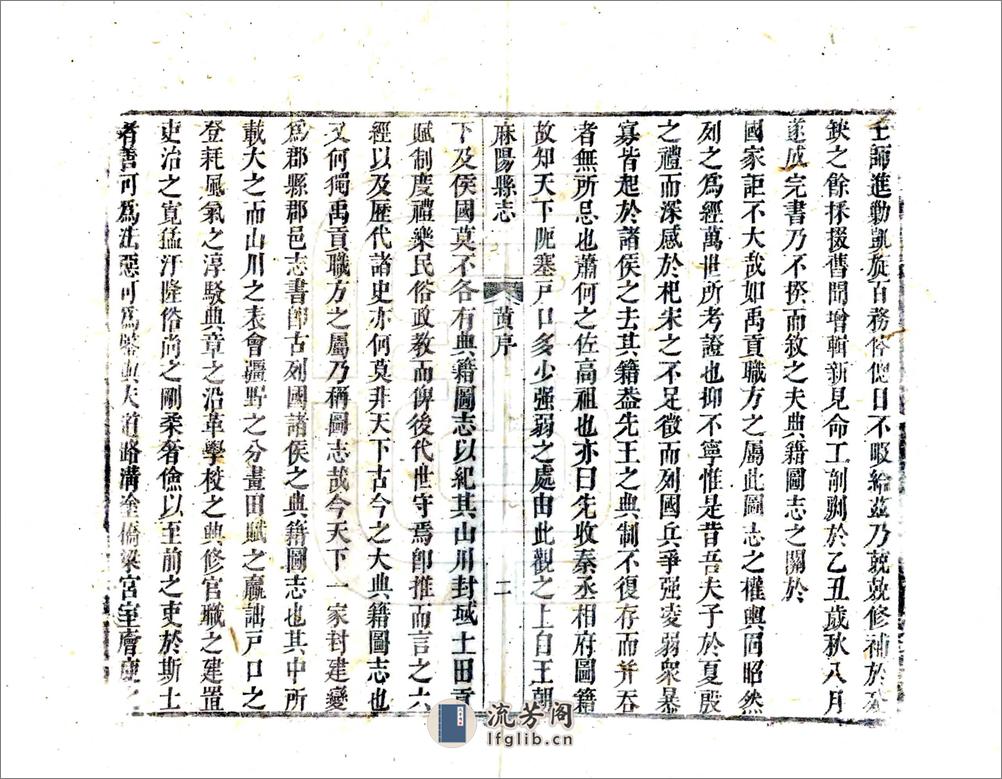 王師進勦凱旋百務倥傯日不暇給茲乃兢兢修補於殘
缺之餘採掇舊聞增輯新見命工剞劂於乙丑歲秋八月
遂成完書乃不揆而敘之夫典籍圖志之關於
國家詎不大哉如禹貢職方之屬此圖志之權輿固昭然
列之為經萬世所考證也抑不寧惟是昔吾夫子於夏殷
之禮而深感於杞宋之不足徵而列國兵爭强凌弱衆暴
寡皆起於諸侯之去其籍葢先王之典制不復存而并吞
者無所忌也蕭何之佐高祖也亦曰先收秦丞相府圖籍
故知天下阨塞戸口多少强弱之處由此觀之上自王朝
麻陽縣志 黄序 二
下及侯國莫不各有典籍圖志以紀其山川封域土田貢
賦制度禮樂民俗政教而俾後代世守焉卽推而言之六
經以及歷代諸史亦何莫非天下古今之大典籍圖志也
又何獨禹貢職方之屬乃稱圖志哉今天下一家封建變
爲郡縣郡邑志書卽古列國諸侯之典籍圖志也其中所
載大之而山川之表會疆野之分畫田賦之贏詘戸口之
登耗風氣之淳駁典章之沿革學校之興修官職之建置
吏治之寛猛汙隆俗尚之剛柔奢儉以至前之吏於斯土
者善可爲法惡可爲鑒與夫道路溝塗橋梁宫室廨廋之
流芳阁
lfglib.cn